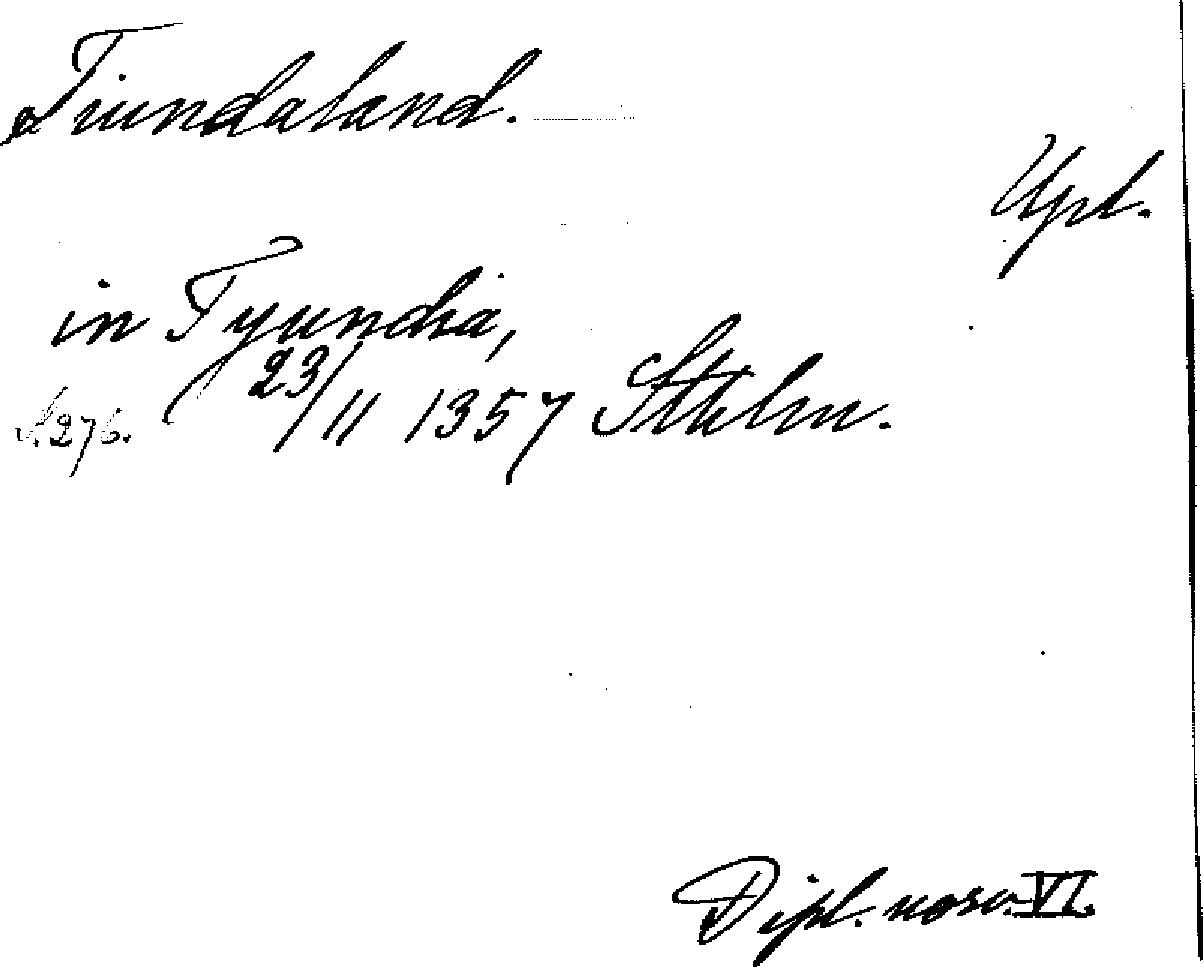 Tiundaland.
Upl.
in Tyundia,
S. 276. 23/11 1357 Sthlm.
Dipl. norv. VI.